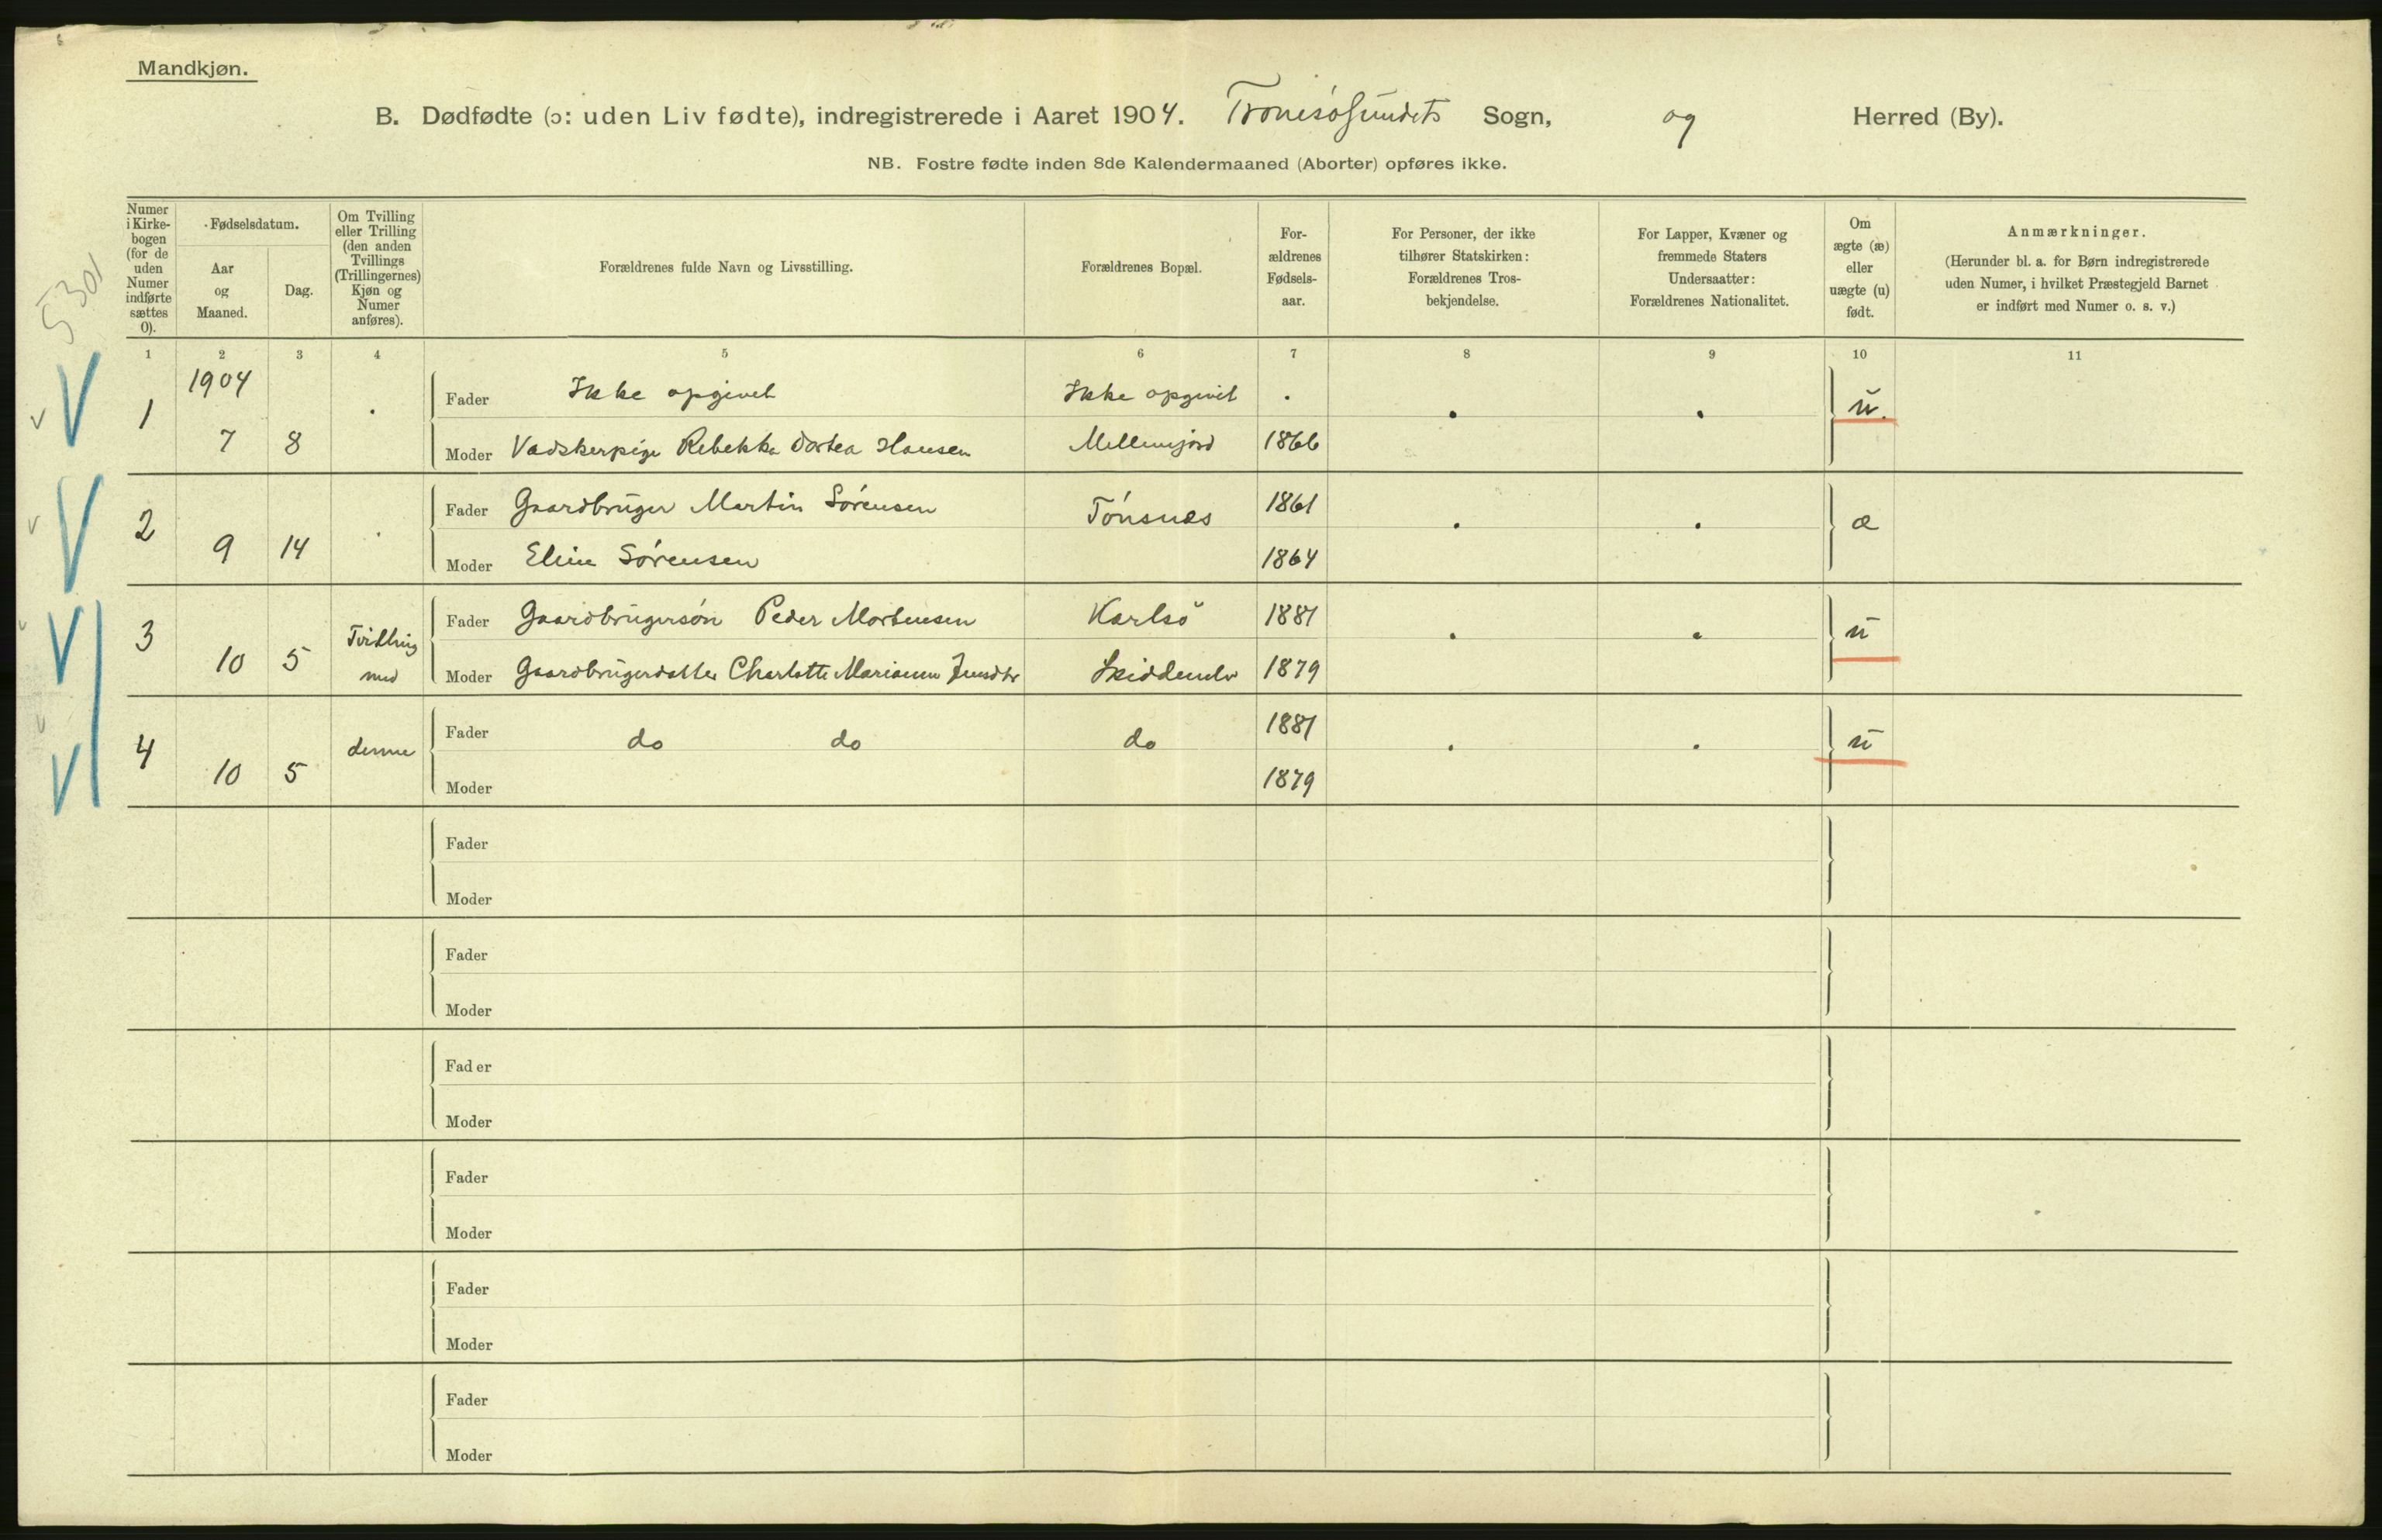 Mandkjøn.
B. Dødfødte (ɔ: uden Liv fødte), indregistrerede i Aaret 1904. Tromsøsundets Sogn, og Herred (By).
NB. Fostre fødte inden 8de Kalendermaaned (Aborter) opføres ikke.
5301
Numer i Kirkebogen (for de uden Numer indførte sættes 0).
Fødselsdatum.
Aar og Maaned.
Dag.
Om Tvilling eller Trilling (den anden Tvillings (Trillingernes) Kjøn og Numer anføres).
Forældrenes fulde Navn og Livsstilling.
Forældrenes Bopæl.
For-ældrenes Fødsels-aar.
For Personer, der ikke tilhører Statskirken: Forældrenes Tros-bekjendelse.
For Lapper, Kvæner og fremmede Staters Undersaatter: Forældrenes Nationalitet.
Om ægte (æ) eller uægte (u) født.
Anmærkninger.
(Herunder bl. a. for Børn indregistrerede uden Numer, i hvilket Præstegjeld Barnet er indført med Numer o. s. v.)
1 2 3 4 5 6 7 8 9 10 11
1904
1 Fader Ikke opgivet Ikke opgivet . . . u.
7 8 Moder Vadskerpige Rebekka Dortea Hansen Mellemjord 1866
2 Fader Gaardbruger Martin Sörensen Tönsnes 1861 . . æ
9 14 Moder Eline Sörensen 1864
3 Tvilling Fader Gaardbrugersön Peder Mortensen Karlsö 1881 . . u
10 5 med Moder Gaardbrugerdatter Charlotte Marianne 1879
4 denne Fader do do do 1881 . . u
10 5 Moder 1879
Fader
Moder
Fader
Moder
Fader
Moder
Fader
Moder
Fader
Moder
Fader
Moder